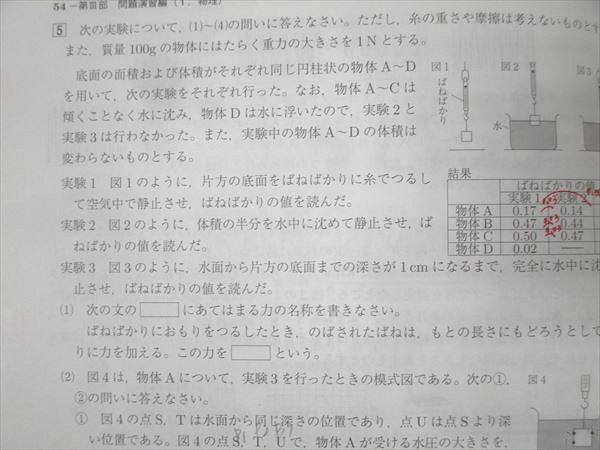 54－第Ⅲ部 問題演習編（1．物理）
5 次の実験について，(1)～(4)の問いに答えなさい。ただし，糸の重さや摩擦は考えないものとす
また，質量100gの物体にはたらく重力の大きさを1Nとする。
底面の面積および体積がそれぞれ同じ円柱状の物体A～D
を用いて，次の実験をそれぞれ行った。なお，物体A～Cは
傾くことなく水に沈み，物体Dは水に浮いたので，実験2と
実験3は行わなかった。また，実験中の物体A～Dの体積は
変わらないものとする。
図1
ばねばかり
図2
水
図3
実験1 図1のように，片方の底面をばねばかりに糸でつるし
て空気中で静止させ，ばねばかりの値を読んだ。
実験2 図2のように，体積の半分を水中に沈めて静止させ，ば
ねばかりの値を読んだ。
結果
ばねばかりの値
実験1 実験2
物体A 0.17 0.14
物体B 0.47 0.44
物体C 0.50 0.47
物体D 0.02 ―
実験3 図3のように，水面から片方の底面までの深さが1cmになるまで，完全に水中に沈
止させ，ばねばかりの値を読んだ。
(1) 次の文の にあてはまる力の名称を書きなさい。
ばねばかりにおもりをつるしたとき，のばされたばねは，もとの長さにもどろうとして
りに力を加える。この力を という。
(2) 図4は，物体Aについて，実験3を行ったときの模式図である。次の①，
②の問いに答えなさい。
図4
① 図4の点S，Tは水面から同じ深さの位置であり，点Uは点Sより深
い位置である。図4の点S，T，Uで，物体Aが受ける水圧の大きさを，